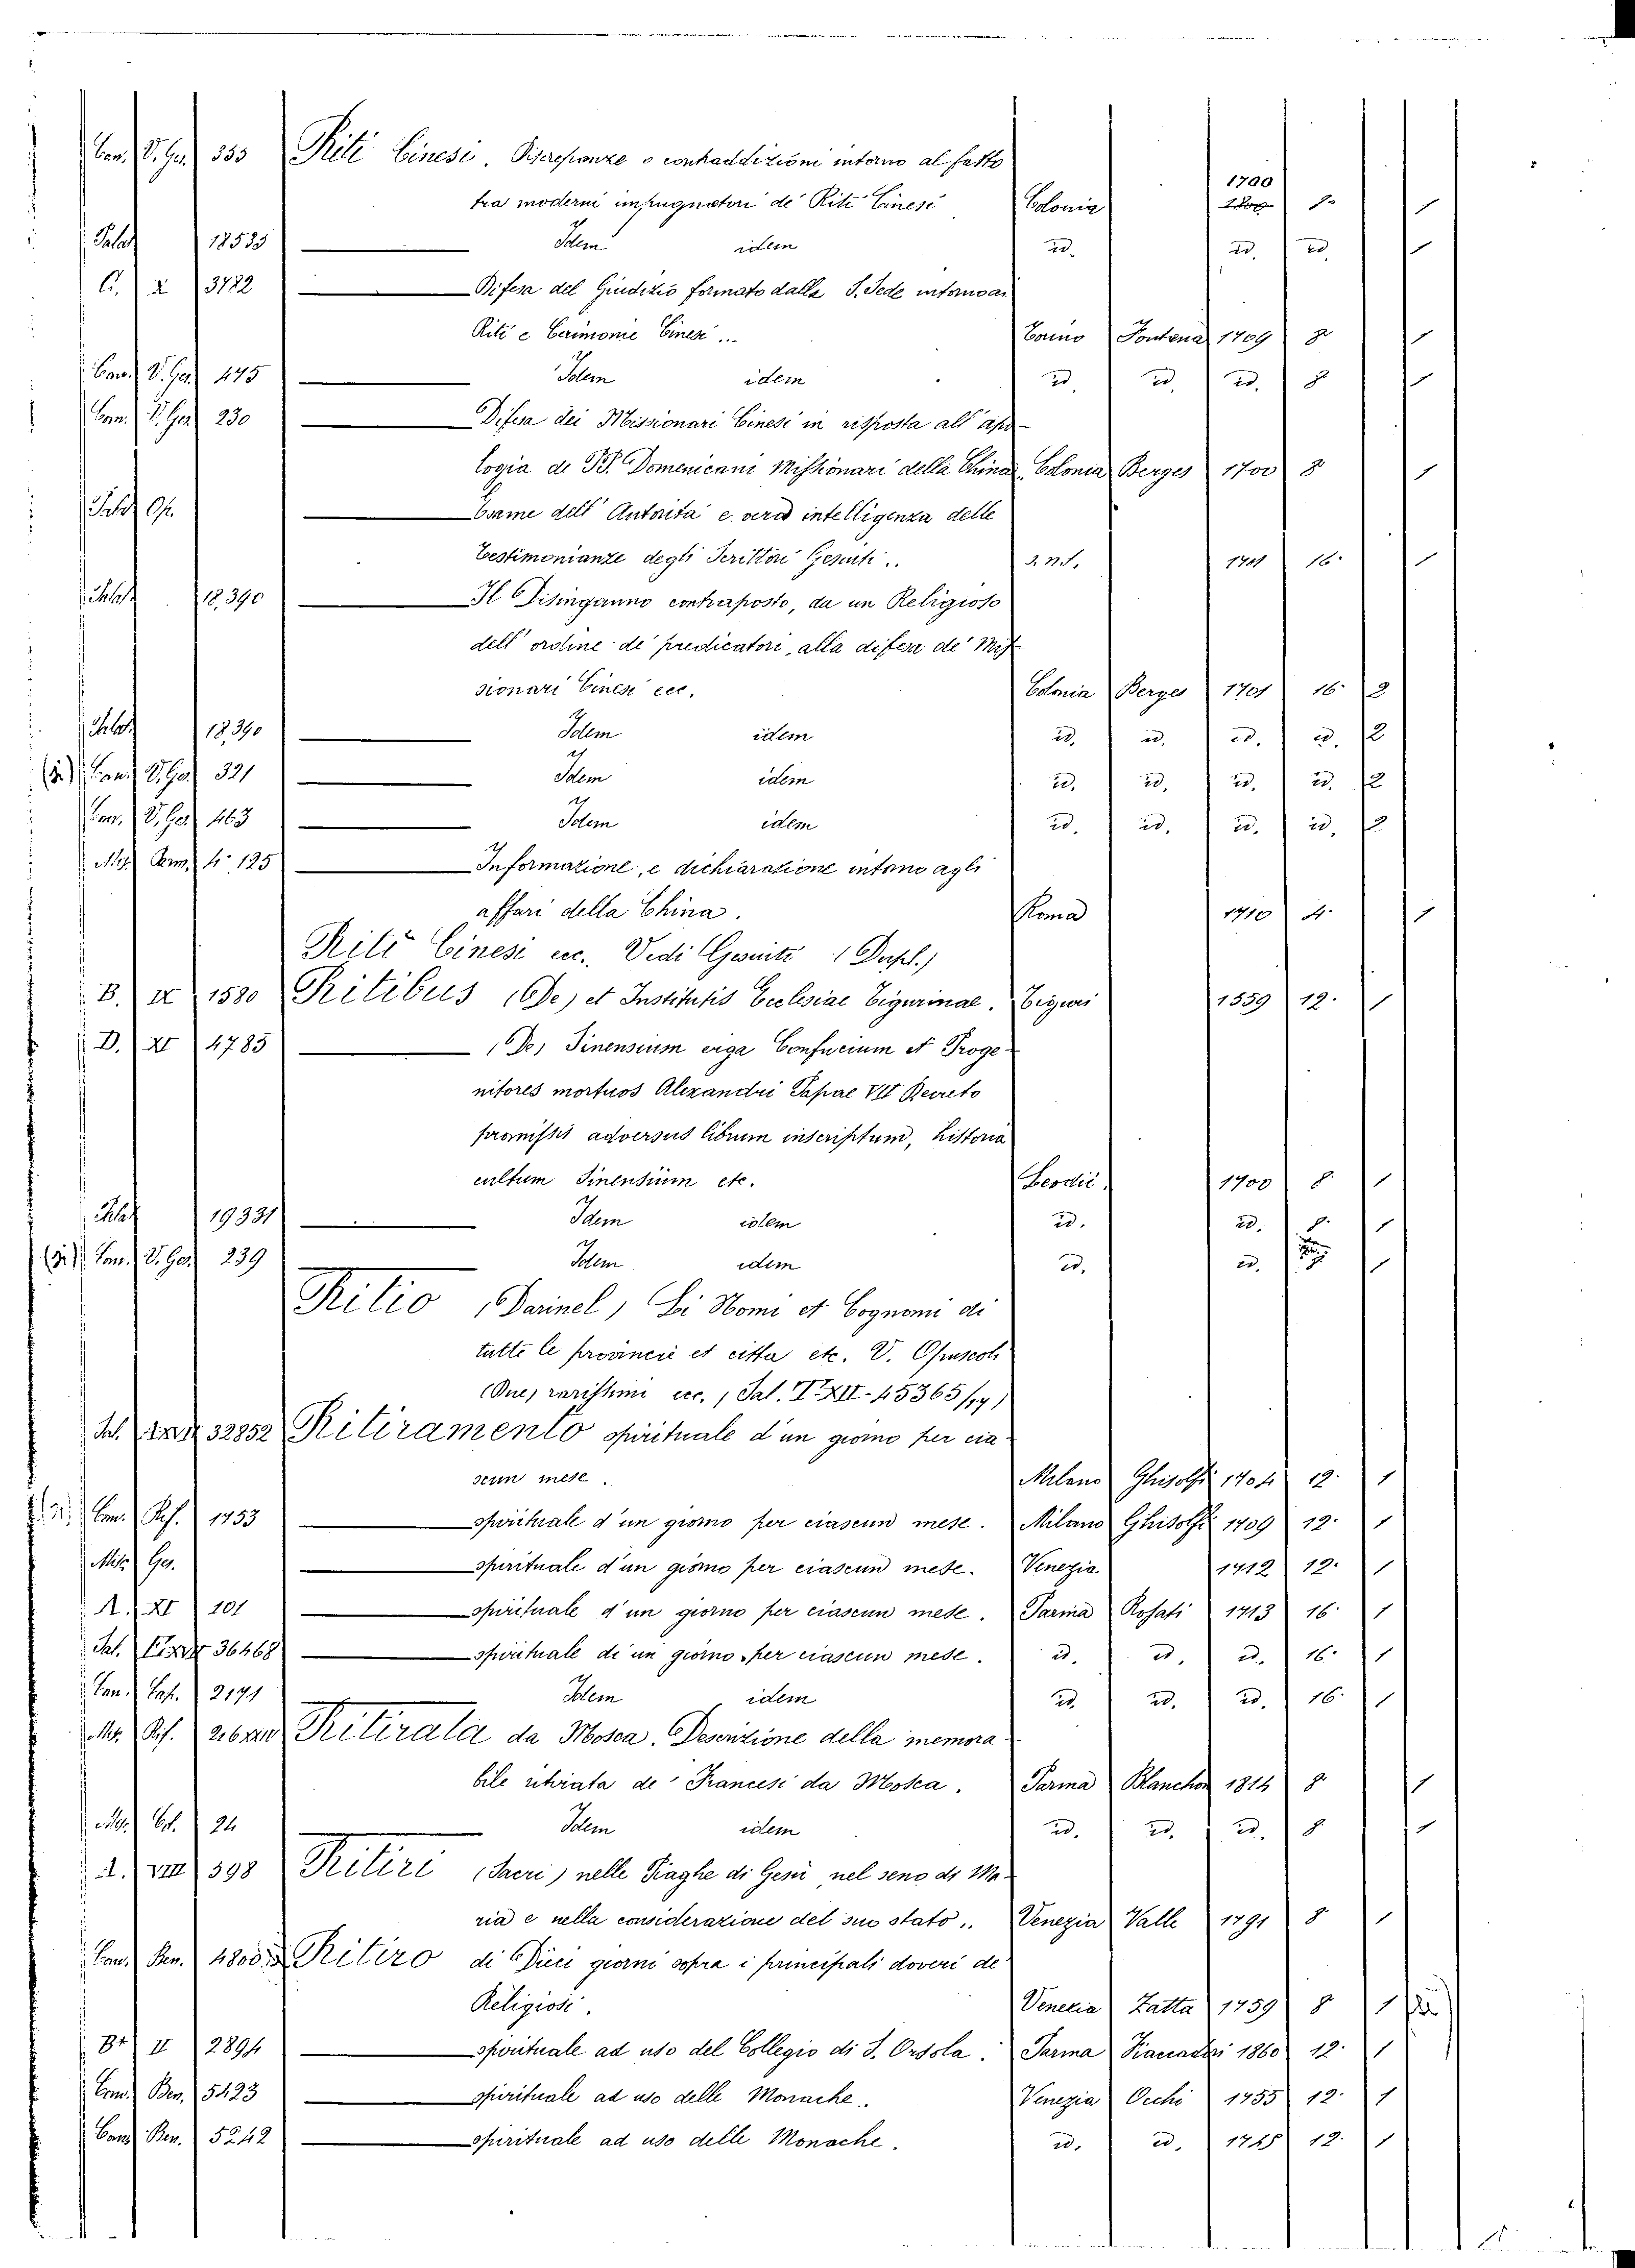 Can. V. Ge. 355 Riti Cinesi. Discrepanze o contraddizioni intorno al fatto
tra moderni impugnatori de' Riti Cinesi Colonia 1700 8. 1
Palat. 18533 Idem idem id. id. id. 1
C. X 3782 Difesa del Giudizio formato dalla S. Sede intorno ai
Riti e Cerimonie Cinesi ... Torino Fontana 1709 8 1
Can. V. Ges. 475 Idem idem id. id. id. 8 1
Can. V. Ges. 230 Difesa dei Missionari Cinesi in risposta all' apo-
logia de PP. Domenicani Missionari della China Colonia Berges 1700 8 1
Palat. Esame dell' Autorità e vera intelligenza delle
testimonianze degli Scrittori Gesuiti .. S. N. T. 1701 16. 1
Palat. 18,390 Il Disinganno contraposto, da un Religioso
dell' ordine de' predicatori, alla difesa de' Mis-
sionari Cinesi ecc. Colonia Berges 1701 16. 2
Palat. 18,390 Idem idem id. id. id. id. 2
Can. V. Ges. 321 Idem idem id. id. id. id. 2
Can. V. Ges. 463 Idem idem id. id. id. id. 2
Mis. Erm. 4.° 125 Informazione, e dichiaratione intorno agli
affari della China. Roma 1710 4. 1
Riti Cinesi ecc. Vedi Gesuiti (Dupl.)
B. IX 1580 Ritibus (De) et Institutis Ecclesiae Tigurinae. Tiguri 1559 12. 1
D. XI 4785 (De) Sinensium erga Confucium et Proge-
nitores mortuos Alexandri Papae VII Decreto
promissis adversus librum inscriptum, historia
cultum Sinensium etc. Leodii. 1700 8. 1
Palat. 19331 Idem idem id. id. 8. 1
Can. V. Ges. 239 Idem idem id. id. 1
Ritio (Darinel) Li Nomi et Cognomi di
tutte le provincie et citta etc. V. Opuscoli
(Due) rarissimi ecc. (Sal. T. XII-45365/14)
Sal. 32852 Ritiramento spirituale d'un giorno per cia-
scun mese. Milano Ghisolfi 1704 12. 1
Can. Rif. 1453 spirituale d'un giorno per ciascun mese. Milano Ghisolfi 1709 12. 1
Mis. Ges. spirituale d'un giorno per ciascun mese. Venezia 1712 12. 1
A. XI 101 spirituale d'un giorno per ciascun mese. Parma Rosati 1713 16. 1
Sal. 36468 spirituale di un giorno per ciascun mese. id. id. id. 16. 1
Can. Cap. 2171 Idem idem id. id. id. 16. 1
Mis. Rif. Ritirata da Mosca. Descrizione della memora-
bile ritirata de' Francesi da Mosca. Parma Blanchon 1814 8 1
Mis. 24 Idem idem id. id. id. 8 1
A. VIII 598 Ritiri (Sacri) nelle Piaghe di Gesù, nel seno di Ma-
ria e nella considerazione del suo stato .. Venezia Valle 1791 8 1
Can. Ben. 4800 Ritiro di Dieci giorni sopra i principali doveri de'
Religiosi. Venezia Zatta 1759 8 1
B+ II 2894 spirituale ad uso del Collegio di S. Orsola. Parma Fiaccadori 1860 12. 1
Can. Ben. 5423 spirituale ad uso delle Monache .. Venezia Occhi 1755 12. 1
Can. Ben. 5242 spirituale ad uso delle Monache. id. id. 1745 12. 1